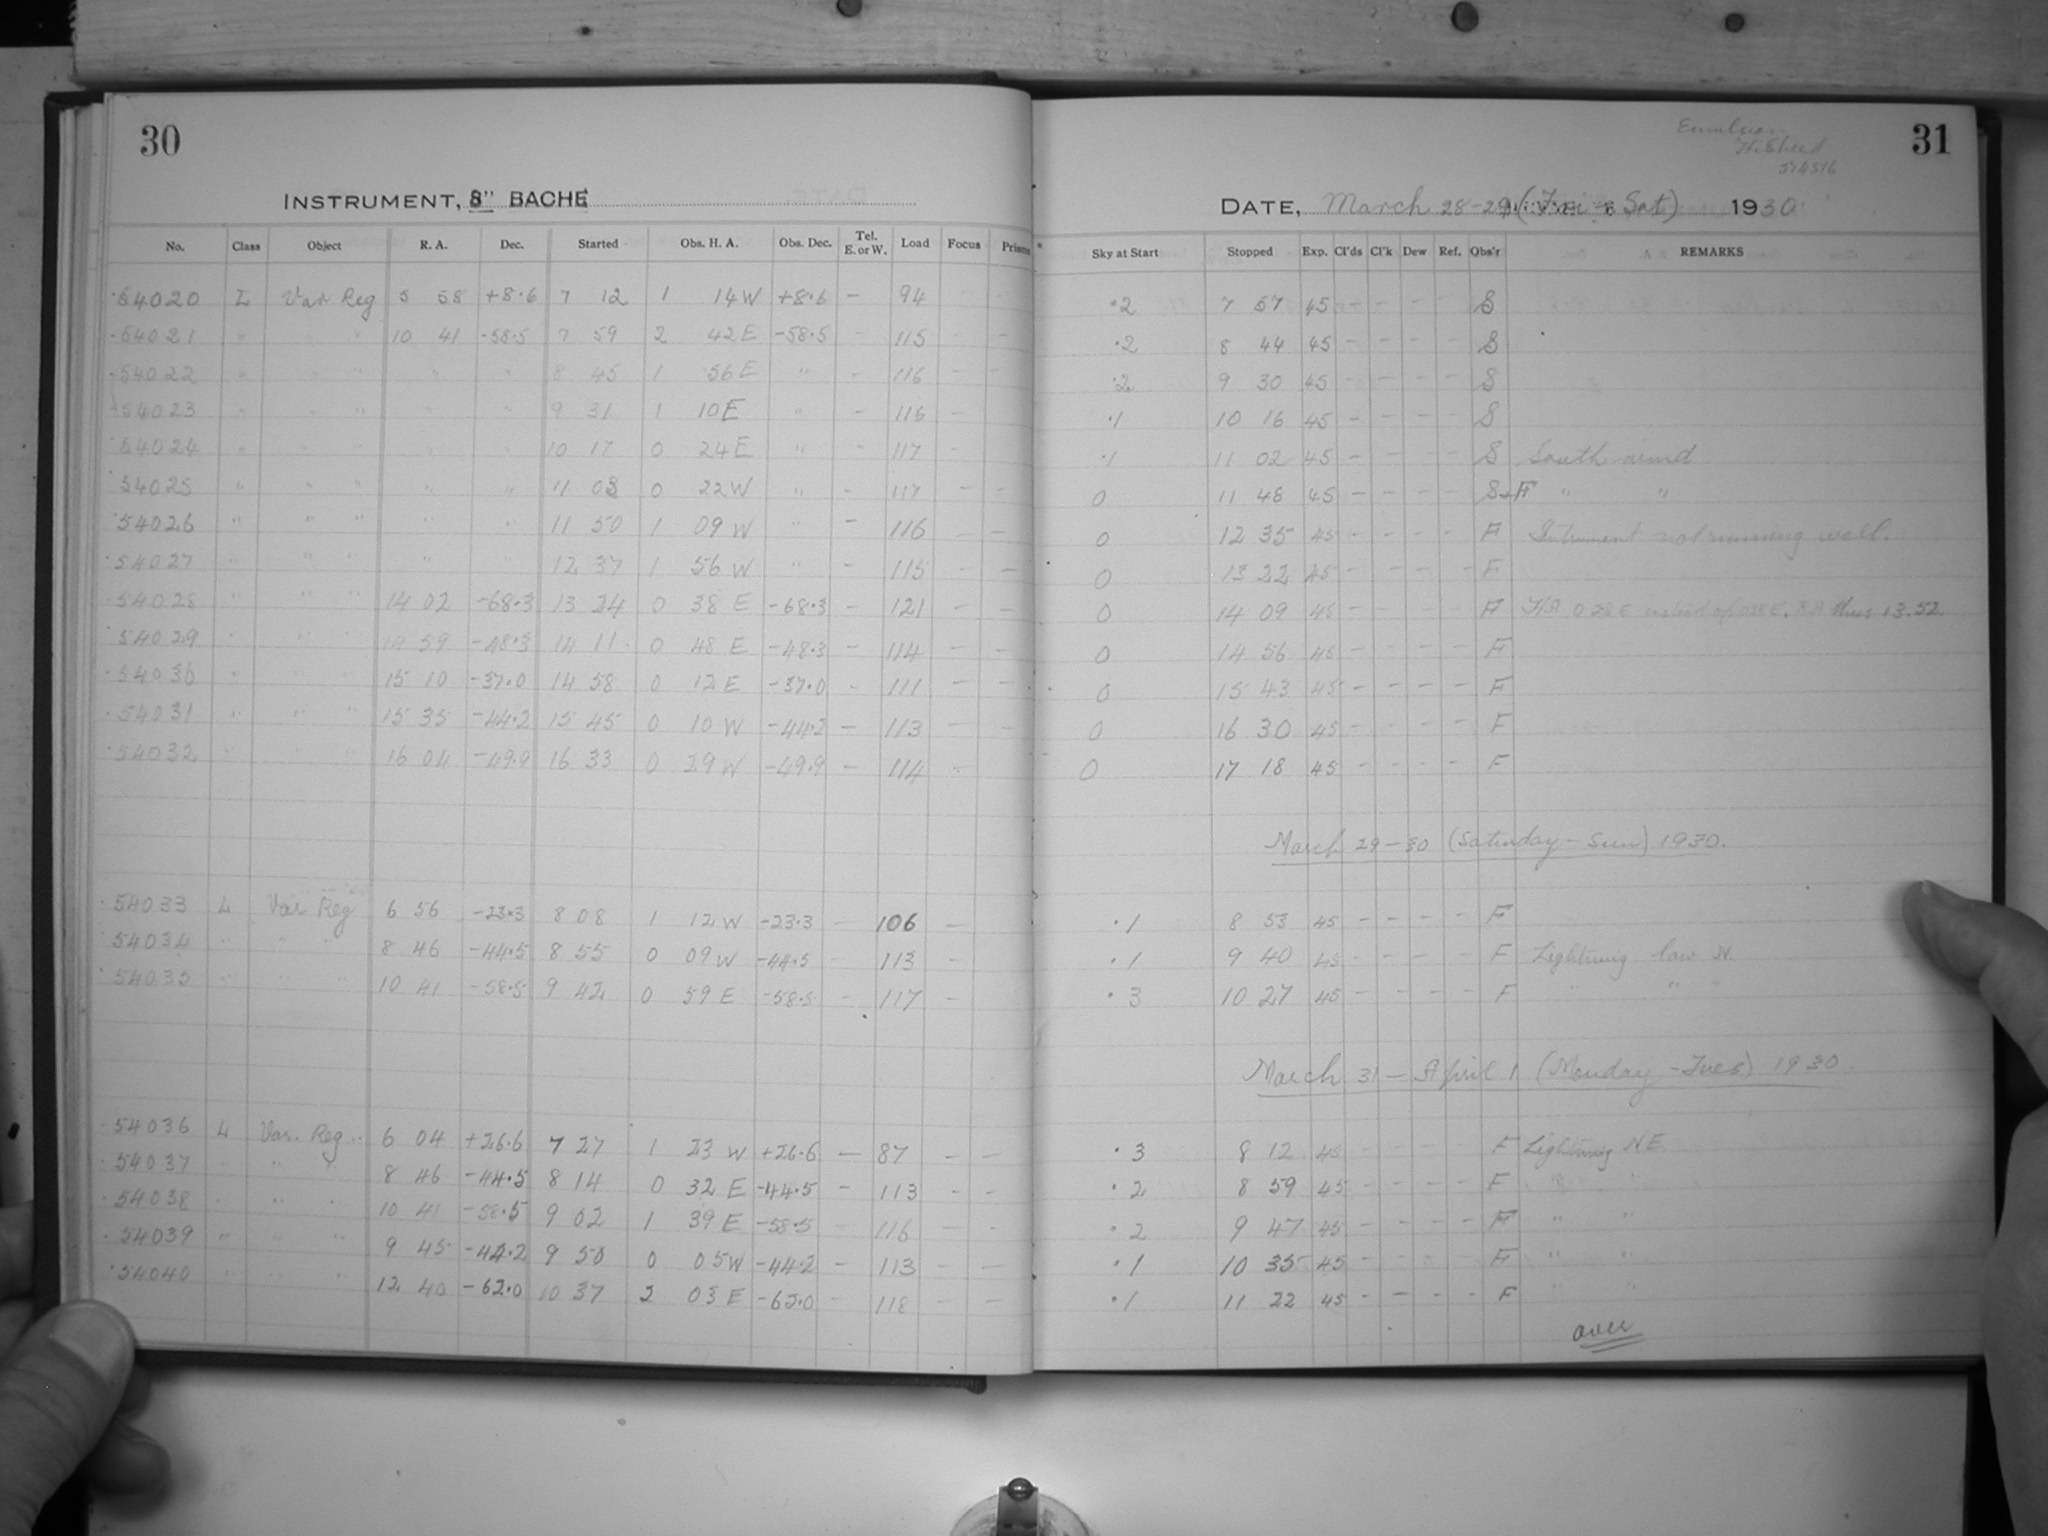 30
INSTRUMENT, 8" BACHE
No. Class Object R. A. Dec. Started Obs. H. A. Obs. Dec. Tel. E. or W. Load Focus Prisms
54020 L Var Reg 5 58 +8.6 7 12 1 14 W +8.6 – 94
54021 " " " 10 41 -58.5 7 59 2 42 E -58.5 – 115 – –
54022 " " " " " 8 45 1 56 E " – 116 – –
54023 " " " " " 9 31 1 10 E " – 116 –
54024 " " " " " 10 17 0 24 E " – 117 –
54025 " " " " " 11 03 0 22 W " – 117 – –
54026 " " " " " 11 50 1 09 W " – 116 – –
54027 " " " " " 12 37 1 56 W " – 115 – –
54028 " " " 14 02 -68.3 13 24 0 38 E -68.3 – 121 – –
54029 " " " 14 59 -48.3 14 11 0 48 E -48.3 – 114 – –
54030 " " " 15 10 -37.0 14 58 0 12 E -37.0 – 111 – –
54031 " " " 15 35 -44.2 15 45 0 10 W -44.2 – 113 – –
54032 " " " 16 04 -49.9 16 33 0 29 W -49.9 – 114 –
54033 L Var Reg 6 56 -23.3 8 08 1 12 W -23.3 – 106 –
54034 " " " 8 46 -44.5 8 55 0 09 W -44.5 – 113 –
54035 " " " 10 41 -58.5 9 42 0 59 E -58.5 – 117 –
54036 L Var. Reg. 6 04 +26.6 7 27 1 23 W +26.6 – 87 – –
54037 " " " 8 46 -44.5 8 14 0 32 E -44.5 – 113 – –
54038 " " " 10 41 -58.5 9 02 1 39 E -58.5 – 116 – –
54039 " " " 9 45 -44.2 9 50 0 05 W -44.2 – 113 – –
54040 " " " 12 40 -62.0 10 37 2 03 E -62.0 – 118 – –
Emulsion
31
HiSpeed
DATE, March 28-29 (Fri - Sat) 1930
Sky at Start Stopped Exp. Cl'ds Cl'k Dew Ref. Obs'r REMARKS
.2 7 57 45 – – – – S
.2 8 44 45 – – – – S
.2 9 30 45 – – – – S
.1 10 16 45 – – – – S
.1 11 02 45 – – – – S South wind
0 11 48 45 – – – – S+F " "
0 12 35 45 – – – – F Intrument not running well.
0 13 22 45 – – – – F
0 14 09 45 – – – – F HA 0 28 E instead of 038 E. RA thus 13.52
0 14 56 45 – – – – F
0 15 43 45 – – – – F
0 16 30 45 – – – – F
0 17 18 45 – – – – F
March 29-30 (Saturday - Sun) 1930.
.1 8 53 45 – – – – F
.1 9 40 45 – – – – F Lightning low N.
.3 10 27 45 – – – – F " " "
March 31 - April 1 (Monday - Tues) 1930.
.3 8 12 45 – – – – F Lightning NE
.2 8 59 45 – – – – F " "
.2 9 47 45 – – – – F " "
.1 10 35 45 – – – – F " "
.1 11 22 45 – – – – F " "
over